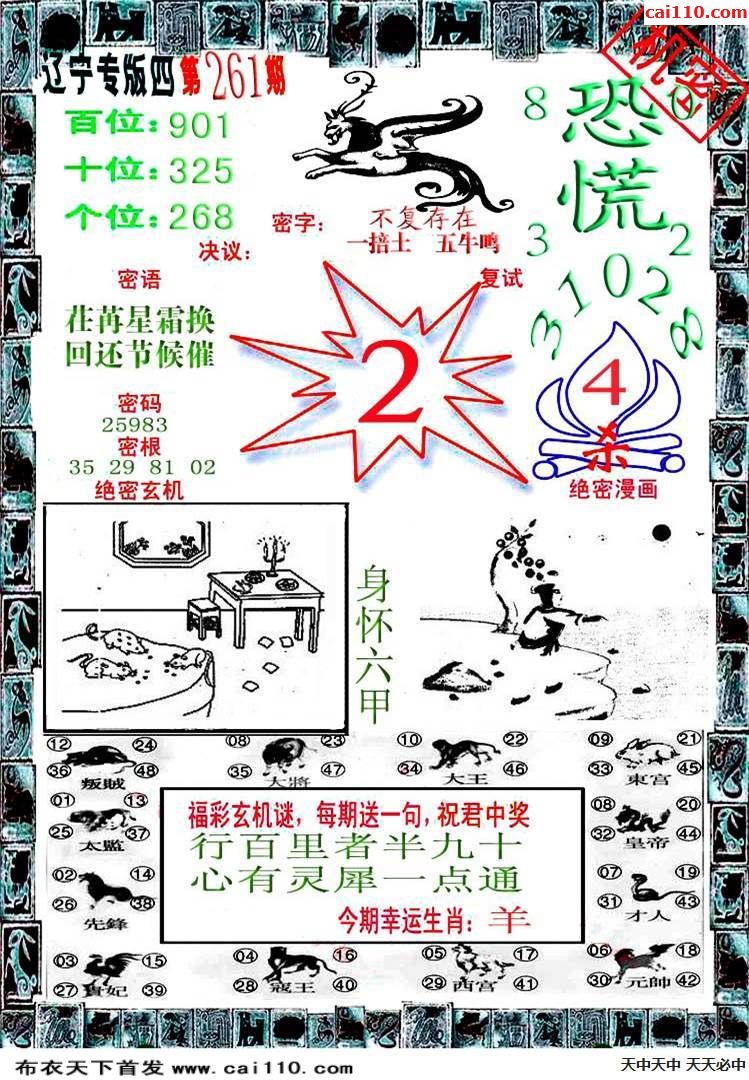 cai110.com
机密
辽宁专版四第261期
百位:901
十位:325
个位:268
密字:
不复存在
一掊土 五牛鸣
决议:
8 恐 0
慌
3 2
31028
密语
复试
荏苒星霜换
回还节候催
2
4
杀
密码
25983
密根
35 29 81 02
绝密玄机
绝密漫画
身怀六甲
12 24
36 48
叛贼
08 23
35 47
大將
10 22
34 46
大王
09 21
33 45
東宫
01 13
25 37
太監
08 20
32 44
皇帝
02 14
26 38
先鋒
07 19
31 43
才人
福彩玄机谜,每期送一句,祝君中奖
行百里者半九十
心有灵犀一点通
今期幸运生肖:羊
03 15
27 39
貴妃
04 16
28 40
寇王
05 17
29 41
西宫
06 18
30 42
元帥
布衣天下首发 www.cai110.com
天中天中 天天必中